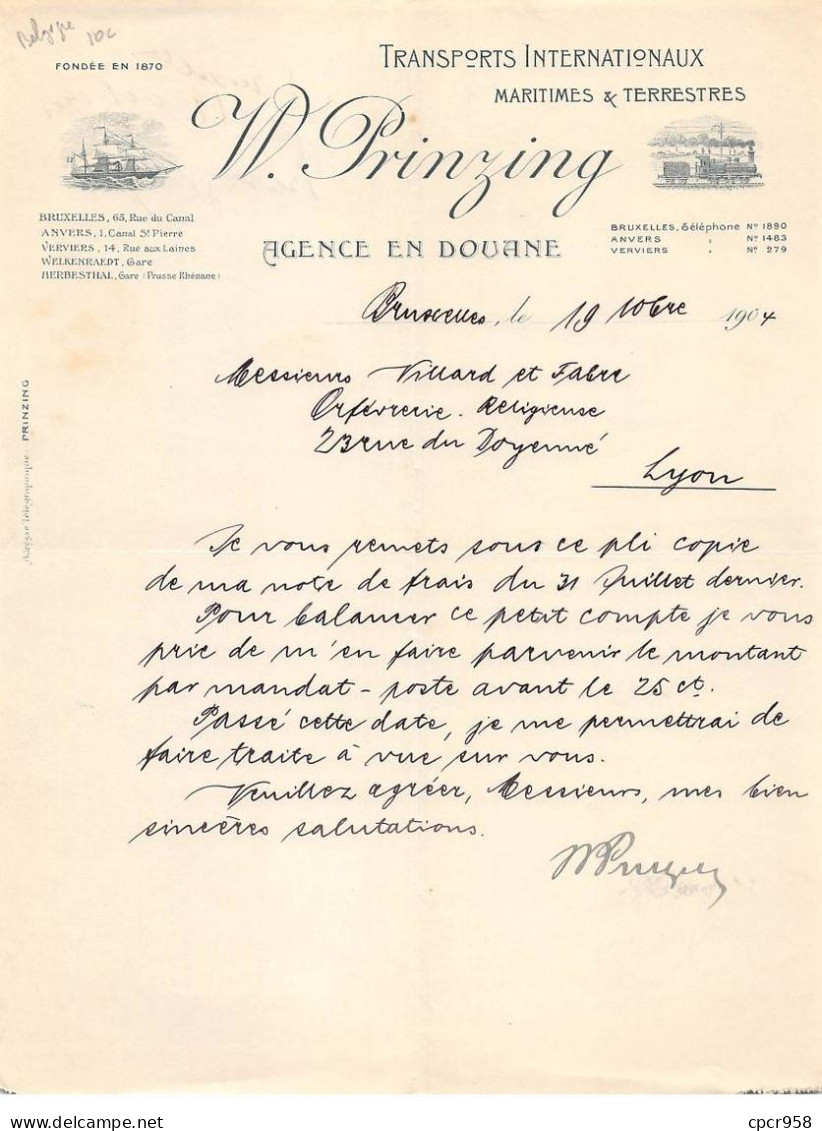 Belgique
10c
FONDÉE EN 1870
TRANSPORTS INTERNATIONAUX
MARITIMES & TERRESTRES
W. Prinzing
BRUXELLES, 65, Rue du Canal
ANVERS, 1, Canal St Pierre
VERVIERS, 14, Rue aux Laines
WELKENRAEDT, Gare
HERBESTHAL, Gare (Prusse Rhénane)
AGENCE EN DOUANE
BRUXELLES, Téléphone No 1890
ANVERS " No 1483
VERVIERS " No 279
Bruxelles, le 19 10bre 1904
Messieurs Villard et Fabre
Orfévrerie. Religieuse
23 rue du Doyenné
Lyon
Adresse Télégraphique: PRINZING
Je vous remets sous ce pli copie
de ma note de frais du 31 Juillet dernier.
Pour balancer ce petit compte je vous
prie de m'en faire parvenir le montant
par mandat-poste avant le 25 ct.
Passé cette date, je me permettrai de
faire traite à vue sur vous.
Veuillez agréer, Messieurs, mes bien
sincères salutations.
W Prinzing
www.delcampe.net
cpcr958